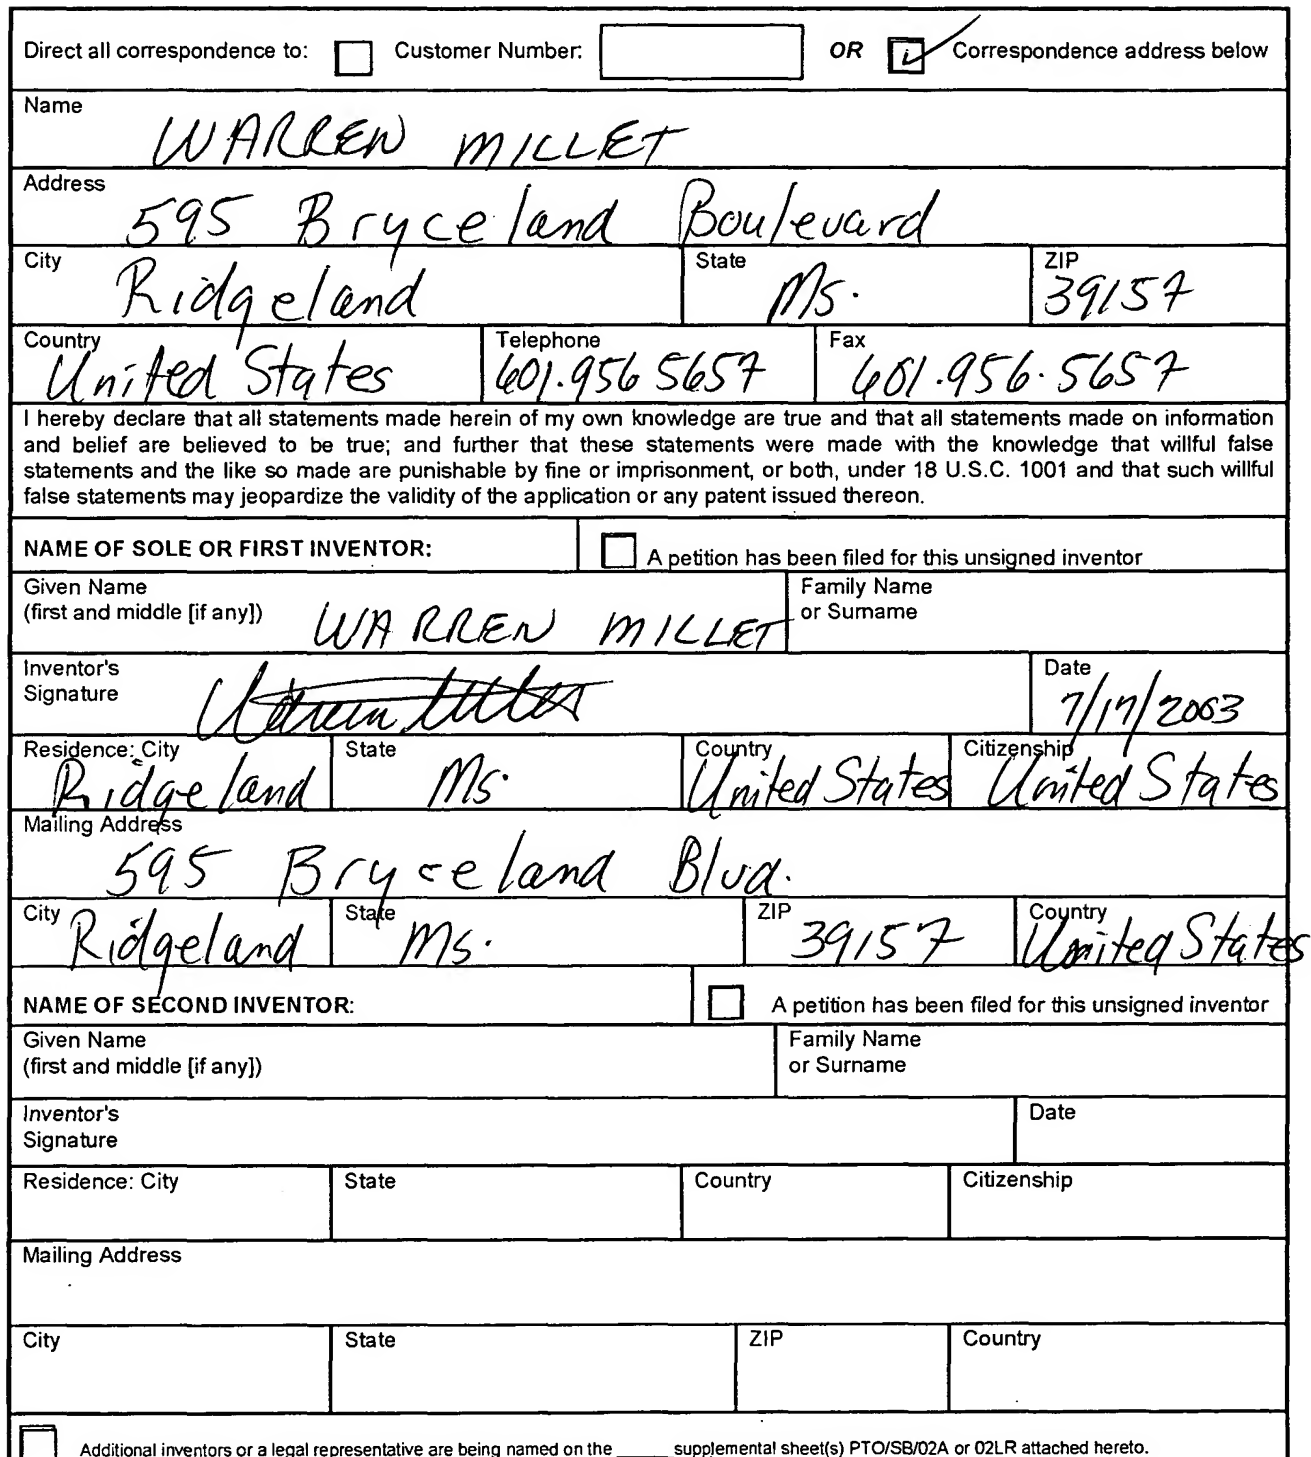 Direct all correspondence to: Customer Number: OR Correspondence address below
Name
WARREN MILLET
Address
595 Bryceland Boulevard
City State ZIP
Ridgeland Ms. 39157
Country Telephone Fax
United States 601.956 5657 601.956.5657
I hereby declare that all statements made herein of my own knowledge are true and that all statements made on information
and belief are believed to be true; and further that these statements were made with the knowledge that willful false
statements and the like so made are punishable by fine or imprisonment, or both, under 18 U.S.C. 1001 and that such willful
false statements may jeopardize the validity of the application or any patent issued thereon.
NAME OF SOLE OR FIRST INVENTOR: A petition has been filed for this unsigned inventor
Given Name Family Name
(first and middle [if any]) WARREN MILLET or Surname
Inventor's Date
Signature Warren Millet 7/17/2003
Residence: City State Country Citizenship
Ridgeland Ms. United States United States
Mailing Address
595 Bryceland Blvd.
City State ZIP Country
Ridgeland Ms. 39157 United States
NAME OF SECOND INVENTOR: A petition has been filed for this unsigned inventor
Given Name Family Name
(first and middle [if any]) or Surname
Inventor's Date
Signature
Residence: City State Country Citizenship
Mailing Address
City State ZIP Country
Additional inventors or a legal representative are being named on the _____ supplemental sheet(s) PTO/SB/02A or 02LR attached hereto.